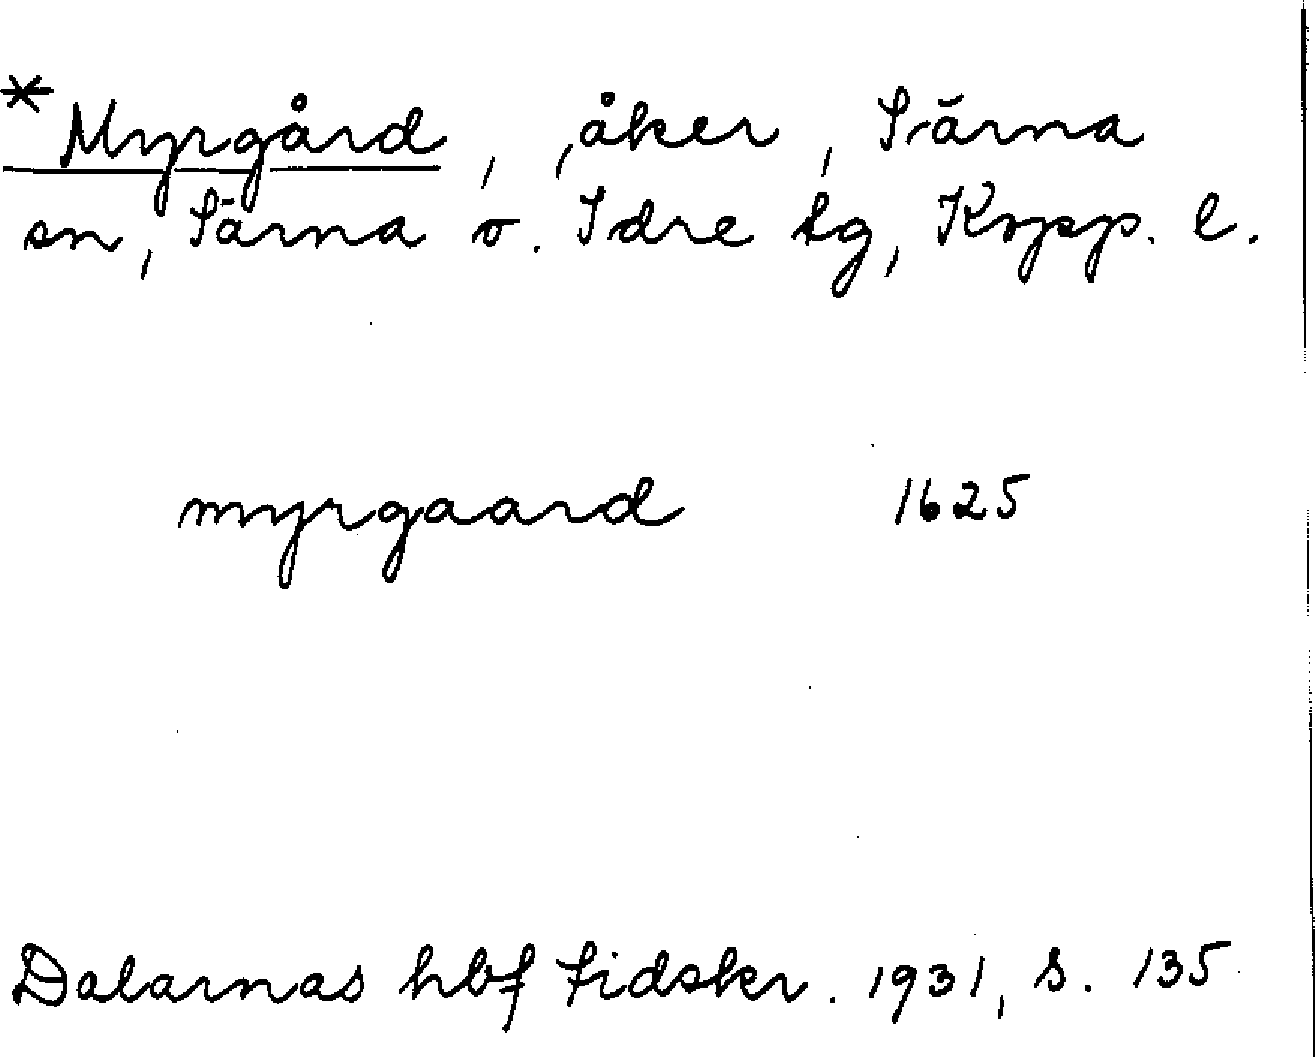 *Myrgård, ,åker, Särna
sn, Särna o. Idre tg, Kopp. l.
myrgaard 1625
Dalarnas hbf tidskr. 1931, s. 135